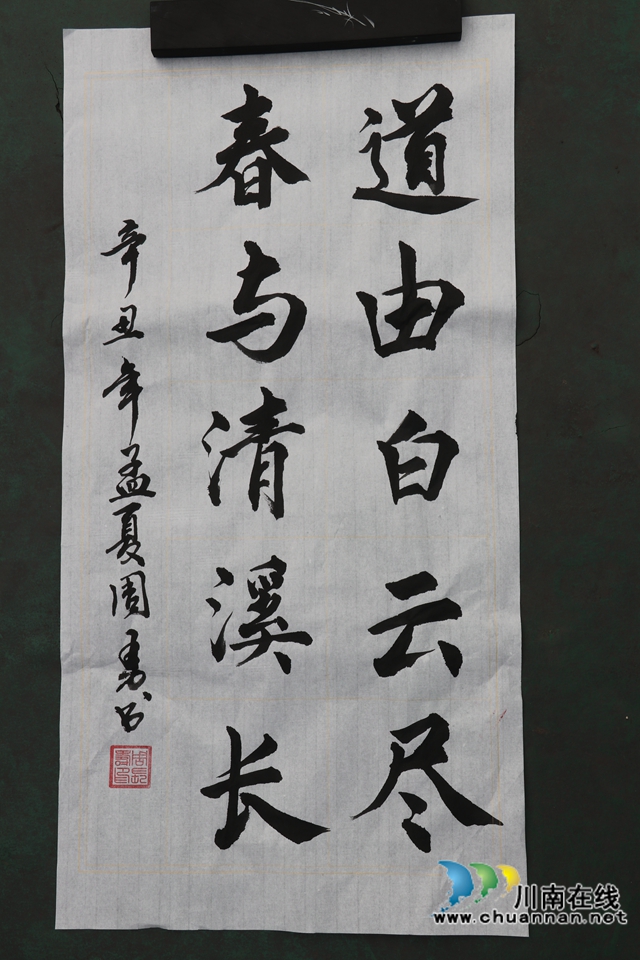 道由白云尽
春与清溪长
辛丑年孟夏周勇书
川南在线
www.chuannan.net